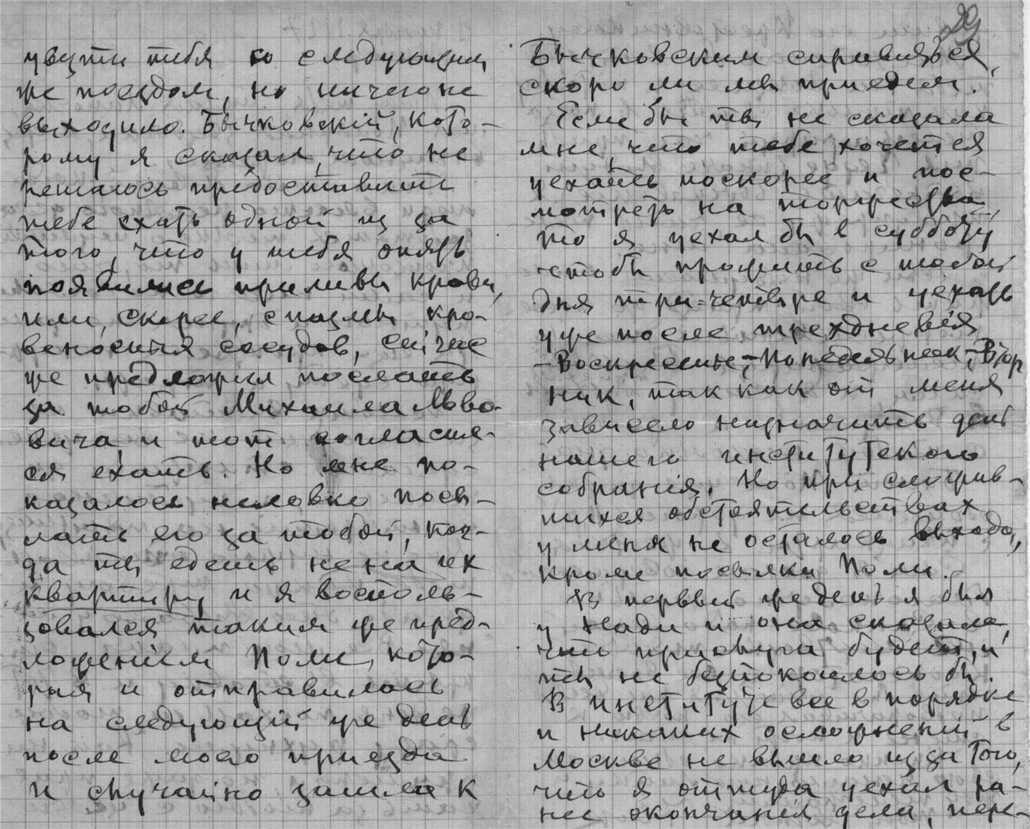 увезти тебя со следующим
же поездом, но ничего не
выходило. Бычковскій, кото-
рому я сказал, что не
решаюсь предоставить
тебе ехать одной из за
того, что у тебя опять
появились приливы крови,
или, скорее, спазмы кро-
веносныя сосудов, сейчас
же предложил послать
за тобой Михаила Льво-
вича и тот согласил-
ся ехать. Но мне по-
казалось неловко посы-
лать его за тобой, ког-
да ты едешь не на их
квартиру и я восполь-
зовался таким же пред-
ложеніем Поли, кото-
рая и отправилась
на следующій же день
после моего приезда
и случайно зашла к
29
Бычковским справиться,
скоро ли мы приедем.
Если бы ты не сказала
мне, что тебе хочется
уехать поскорее и пос-
мотреть на торжества,
то я уехал бы в субботу
чтобы прожить с тобой
дня три-четыре и уехать
уже после трехдневія
-Воскресенье,-Понедельник,-Втор
ник, так как от меня
зависело назначить день
нашего института́ского
собранія. Но при сложив-
шихся обстоятельствах
у меня не осталось выхода,
кроме посылки Поли.
В первый же день я был
у Нади и она сказала,
что прислуга будет, и
ты не безпокоилось бы.
В институте все в порядке
и никаких осложненій в
Москве не вышло из за того,
что я оттуда уехал ра-
нее окончанія дела, пере-